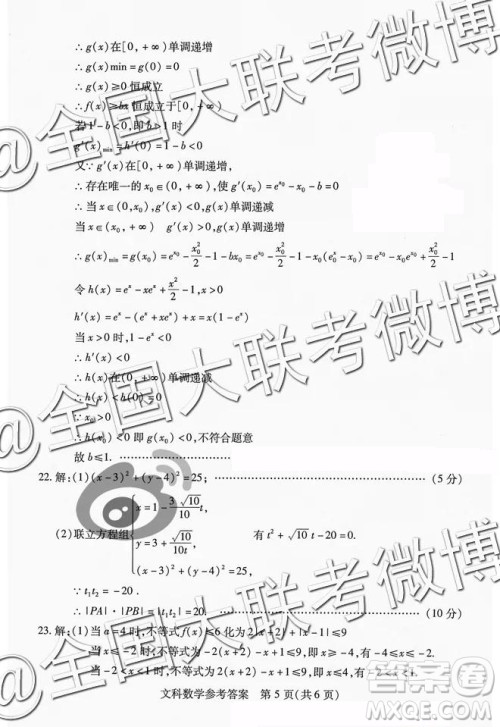 ∴g(x)在[0,+∞)单调递增
∴g(x)min=g(0)=0
∴g(x)≥0恒成立
∴f(x)≥bx恒成立于[0,+∞)
若1-b<0,即b>1时
g′(x)min=h′(0)=1-b<0
又∵g′(x)在[0,+∞)单调递增,
∴存在唯一的x₀∈(0,+∞),使g′(x₀)=e^x₀-x₀-b=0
∴当x∈(0,x₀)时,g′(x₀)<0,g(x)单调递减
当x∈(x₀,+∞) g′(x)>0,g(x)单调递增
∴g(x)min=g(x₀)=e^x₀-x₀²/2-1-bx₀=e^x₀-x₀²/2-1-x₀(e^x-x₀)=e^x₀-x₀e^x₀+x₀²/2-1
令h(x)=e^x-xe^x+x²/2-1,x>0
h′(x)=e^x-(e^x+xe^x)+x=x(1-e^x)
当x>0时,1-e^x<0
∴h′(x)<0
∴h(x)在(0,+∞)单调递减
∴h(x)<h(0)=0
∵x₀>0
∴h(x₀)<0即g(x₀)<0,不符合题意
故b≤1.
22.解:(1)(x-3)²+(y-4)²=25; (5分)
(2)联立方程组 x=1-3√10/10 t, y=3+√10/10t, (x-3)²+(y-4)²=25, 有t²+√10 t-20=0.
∵t₁t₂=-20.
∴|PA|·|PB|=|t₁t₂|=20. (10分)
23.解:(1)当a=4时,不等式f(x)≤6化为2|x+2|+|x-1|≤9
当x≤-2时,不等式为-2(x+2)-x+1≤9,有-4≤x≤-2
当-2<x<1时,不等式为2(x+2)-x+1≤9,有-2<x<1.
文科数学参考答案 第5页(共6页)
@全国大联考微博
@全国大联考微博